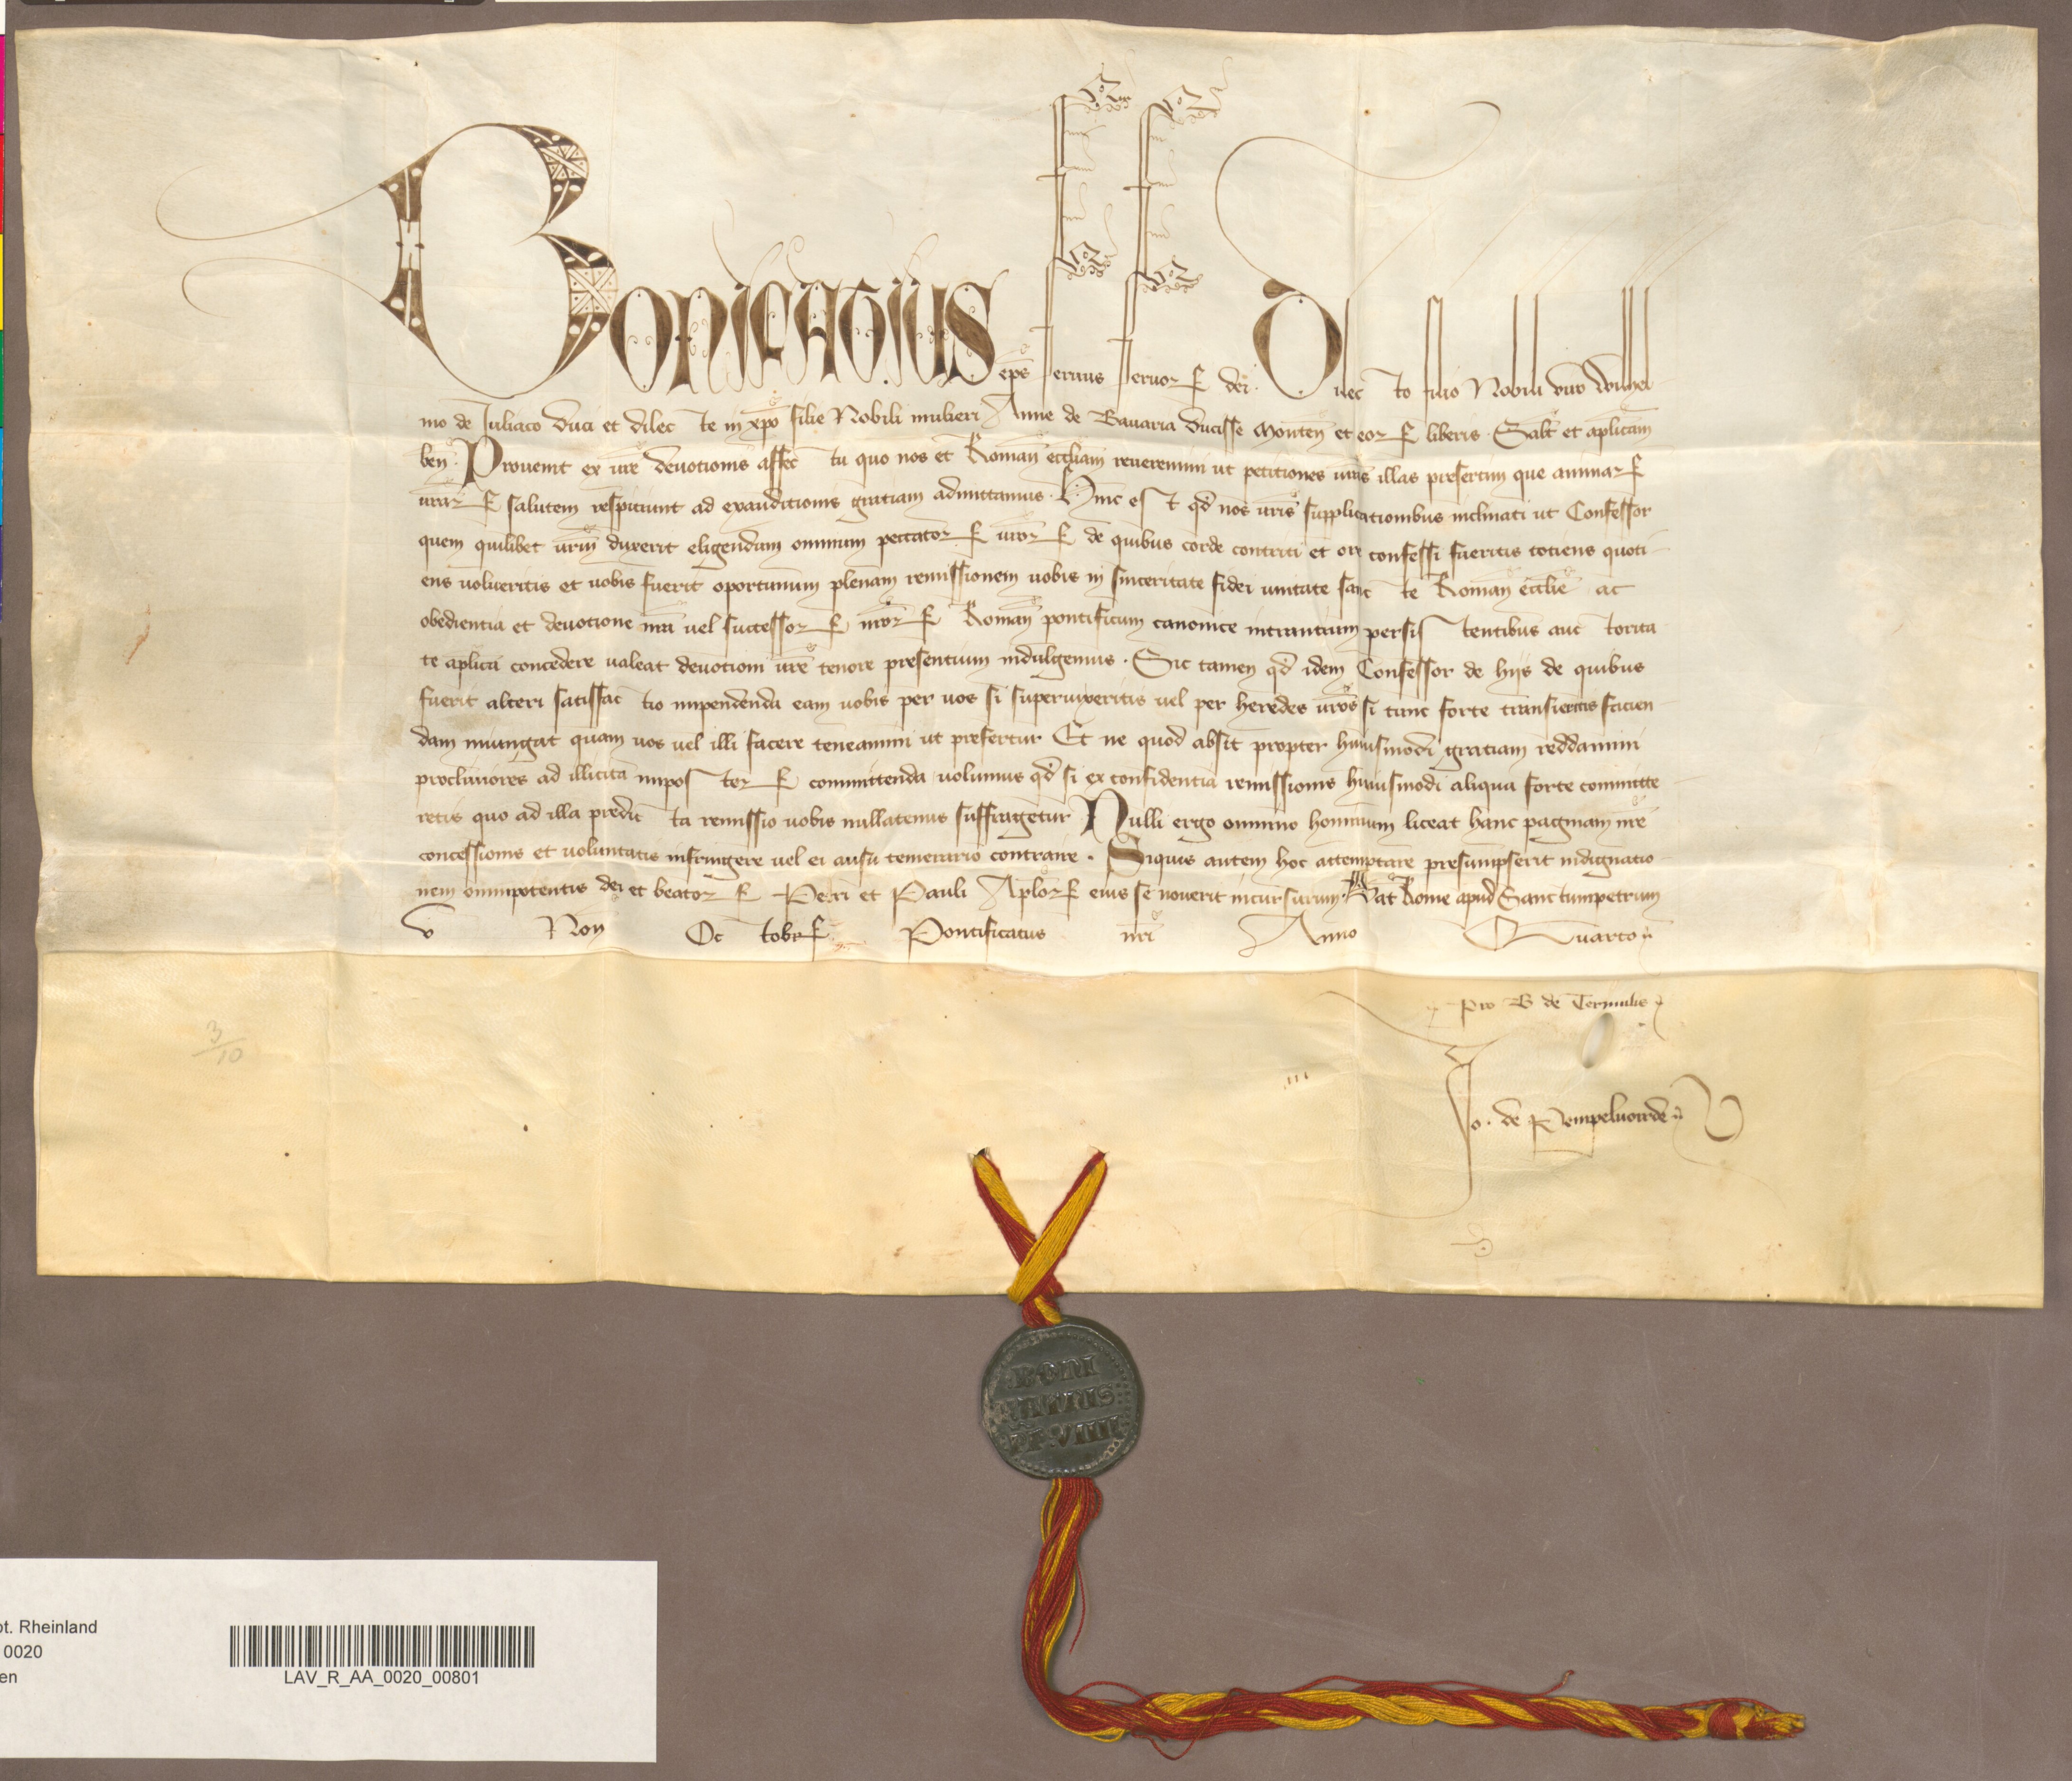 Bonifatius eps seruus seruor dei. Dilecto filio Nobili viro Wilhel
mo de Juliaco duci et dilecte in xpo filie Nobili mulieri Anne de Bauaria ducisse Monten et eor liberis Salt et aplicam
ben. Prouenit ex vre deuotionis affectu quo nos et Roman eccliam reueremini ut petitiones vras illas presertim que animar
vrar salutem respiciunt ad exauditionis gratiam admittamus. Hinc est qd nos vris supplicationibus inclinati ut Confessor
quem quilibet vrm duxerit eligendum omnium peccator vror de quibus corde contriti et ore confessi fueritis totiens quoti-
ens volueritis et vobis fuerit oportunum plenam remissionem vobis in sinceritate fidei unitate sancte Roman ecclie ac
obedientia et deuotione nra vel successor nror Roman pontificum canonice intrantium persistentibus auctorita
te aplica concedere valeat deuotioni vre tenore presentium indulgemus. Sic tamen qd idem Confessor de hijs de quibus
fuerit alteri satisfactio impendenda eam vobis per vos si superuixeritis vel per heredes vros si tunc forte transieritis facien-
dam iniungat quam vos vel illi facere teneamini ut prefertur Et ne quod absit propter huiusmodi gratiam reddamini
procliuiores ad illicita imposter committenda volumus qd si ex confidentia remissionis huiusmodi aliqua forte committe
retis quo ad illa predicta remissio vobis nullatenus suffragetur Nulli ergo omnino hominum liceat hanc paginam nre
concessionis et voluntatis infringere vel ei ausu temerario contraire. Siquis autem hoc attemptare presumpserit indignatio-
nem omnipotentis dei et beator Petri et Pauli Aplor eius se nouerit incursurum. Dat Rome apud Sanctumpetrum
v Non Octobr Pontificatus nri Anno Quarto
Pro B de Termulis
Jo. de Rempeluorde
3/10
BONI
FATIUS
PP VIIII
pt. Rheinland
0020
en
LAV_R_AA_0020_00801